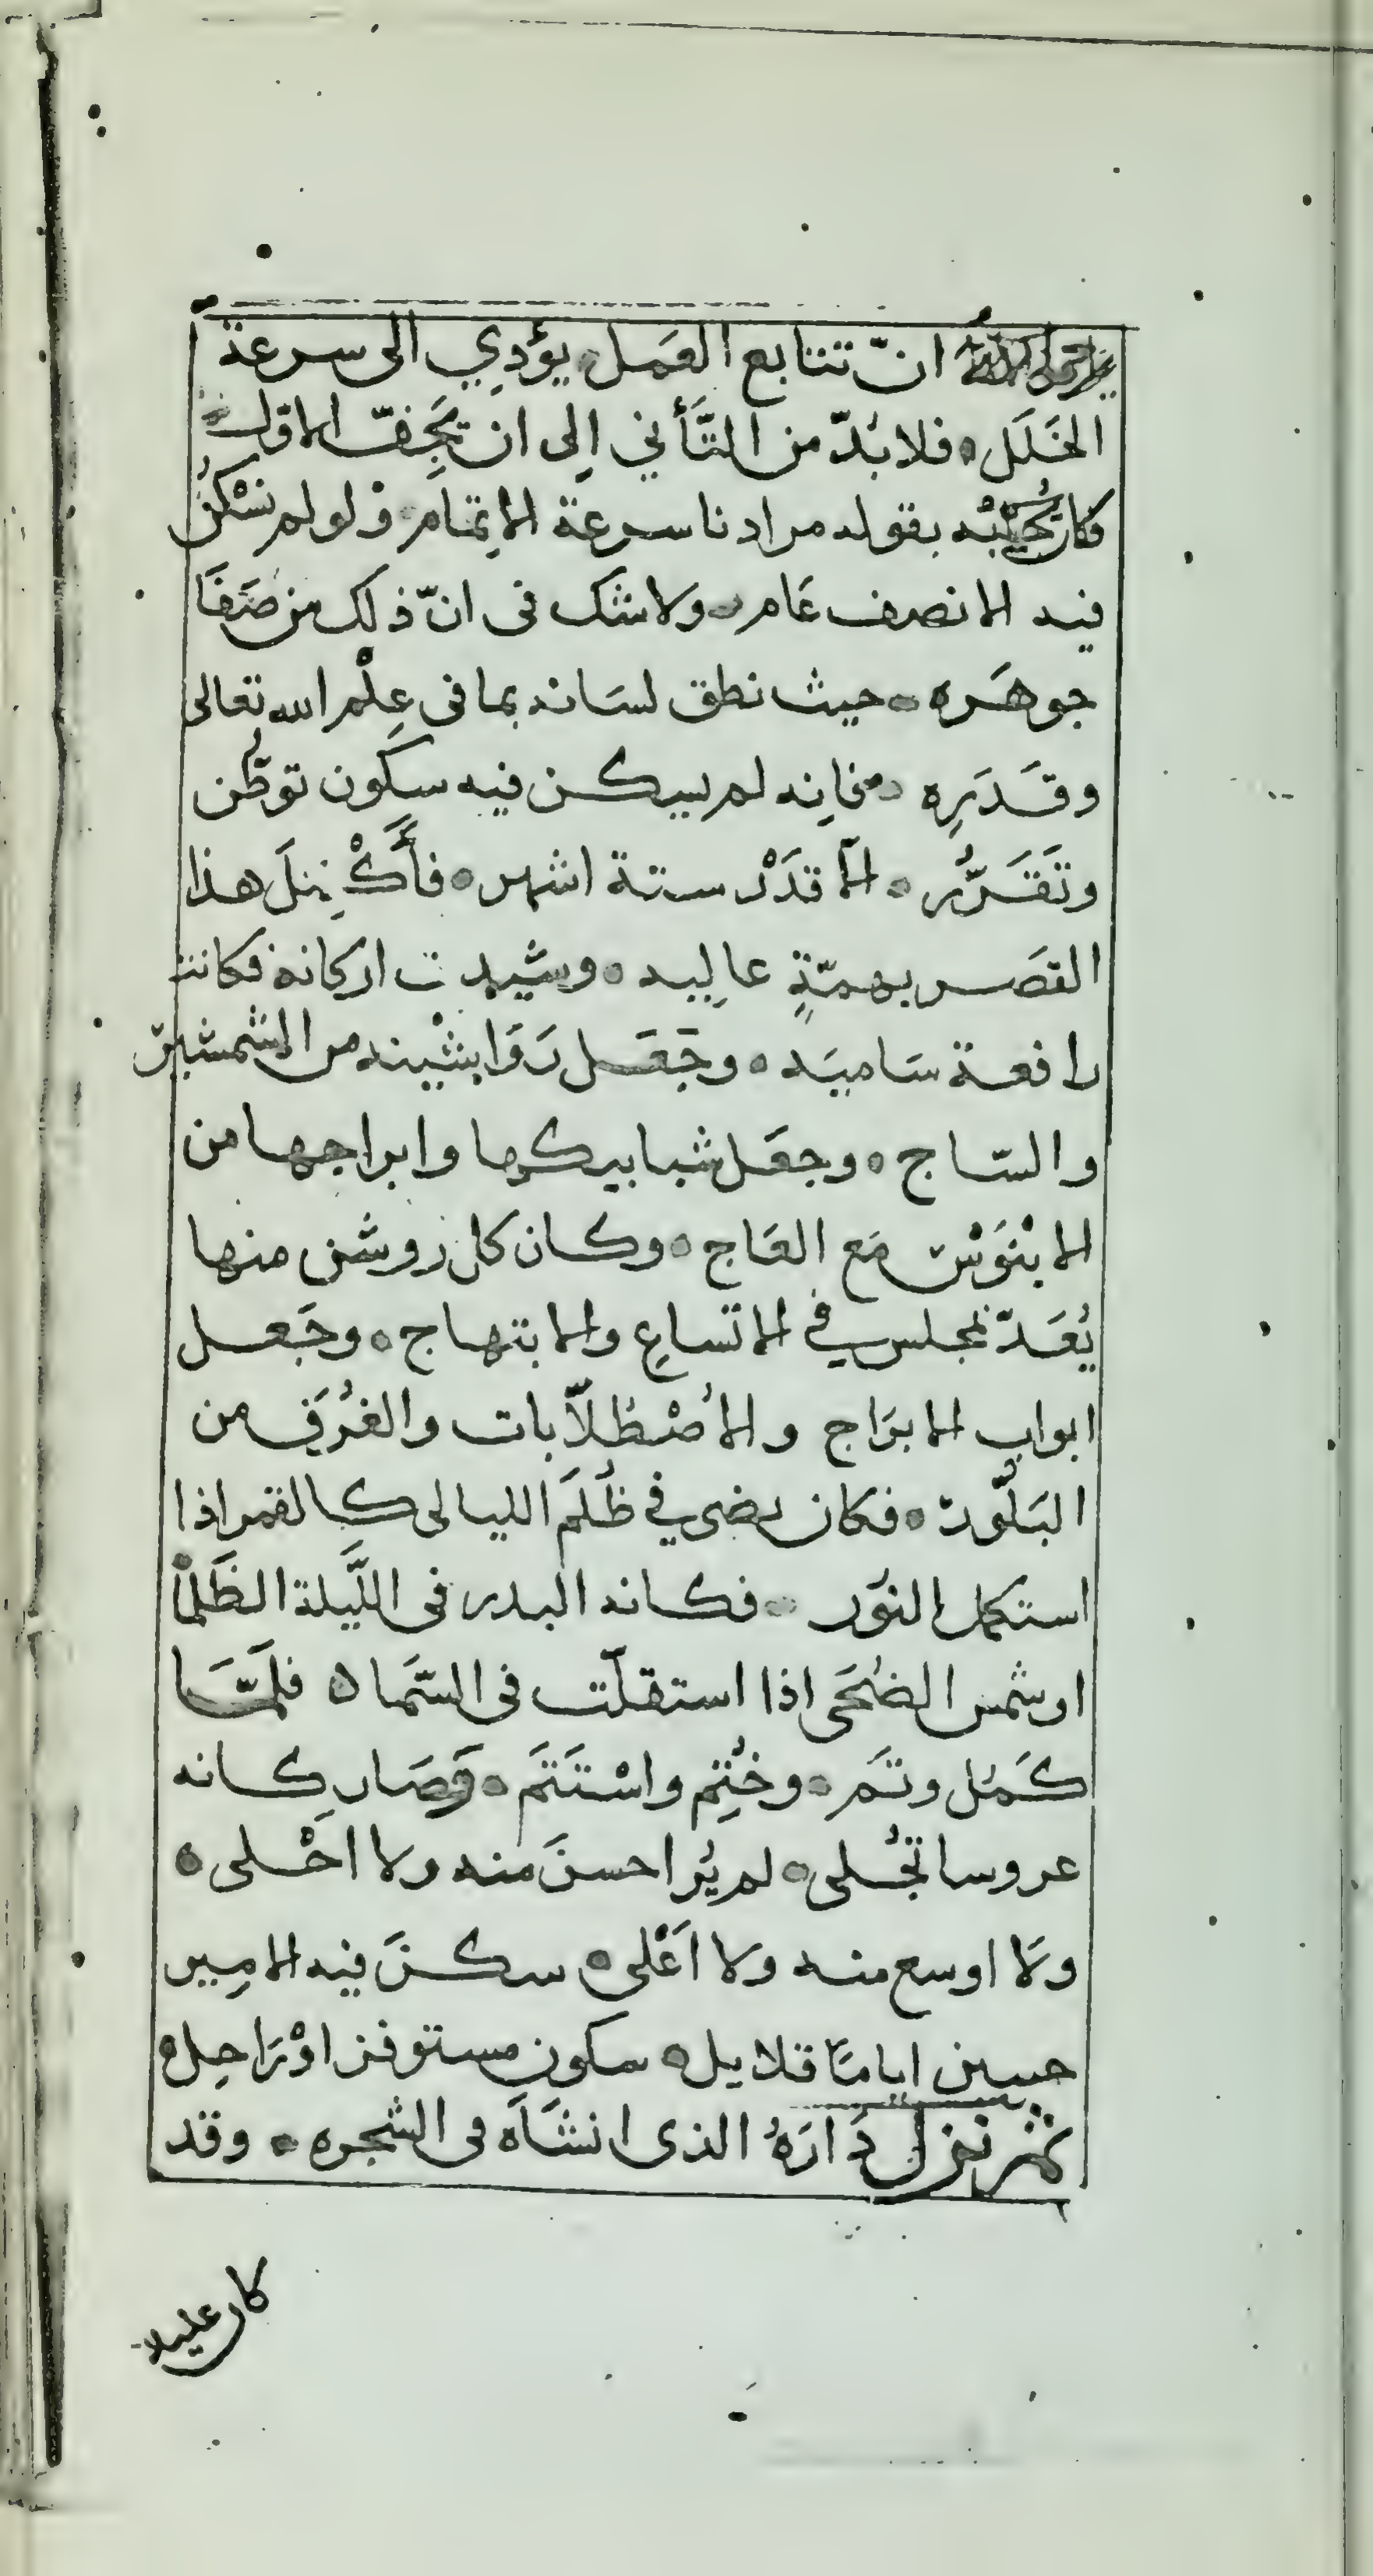 انّ تتابع العَمل يؤدِي الى سرعة
الخَلَل فلا بُدّ من التَّأني اِلى ان يَجِفّ الاوّل
فكان يُجيْبُه بقوله مرادنا سرعة الاِتمام ولو لم نسْكنُ
فيه الا نصف عَام ولا شك فى انّ ذلك من صَفَا
جوهَره حيث نطق لسَانه بما فى عِلْم الله تعالى
وقَدَرِه فاِنه لم يسكن فيه سكون توطُّن
وتَقَرُّر الّا قَدَرْ ستة اشهر فأُكْمِلَ هذا
القصَر بهمّةٍ عاليه وشيدت اركانه فكانت
رافعة سَاميَه وجَعَل رَوَاشْينه من الشمشير
والسّاج وجعَل شبابيكها وابراجها من
الابْنوْس مَع العَاج وكان كل روشن منها
يُعَدّ لمجلس في الاتساعِ والابتهاج وجَعل
ابواب الابرَاج والاُصْطُلّابات والغُرَفِ من
البَلّور فكان يضى في ظُلَمِ الليالى كالقمر اذا
استكمل النوُر فكانه البدر فى اللَّيلة الظَلمْا
او شمس الضُحَى اذا استقلّت فى السّمَا فلمَّا
كَمُل وتَم وخُتِم واسْتَتَم وَصَار كانه
عروسا تجُلى لم يُر احسنَ منه ولا احْلى
ولَا اوسع منه ولا اَعْلى سكنَ فيه الامِير
حسين ايامًا قلايل سكون مستوفز اوْ رَاحِل
ثم نزل دَارَهُ الذى انشَاَه فى الشجره وقد
كان عليه